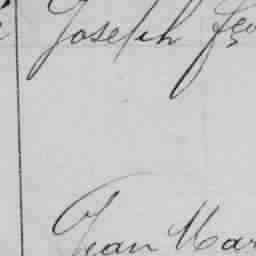 Joseph
Jean Mar